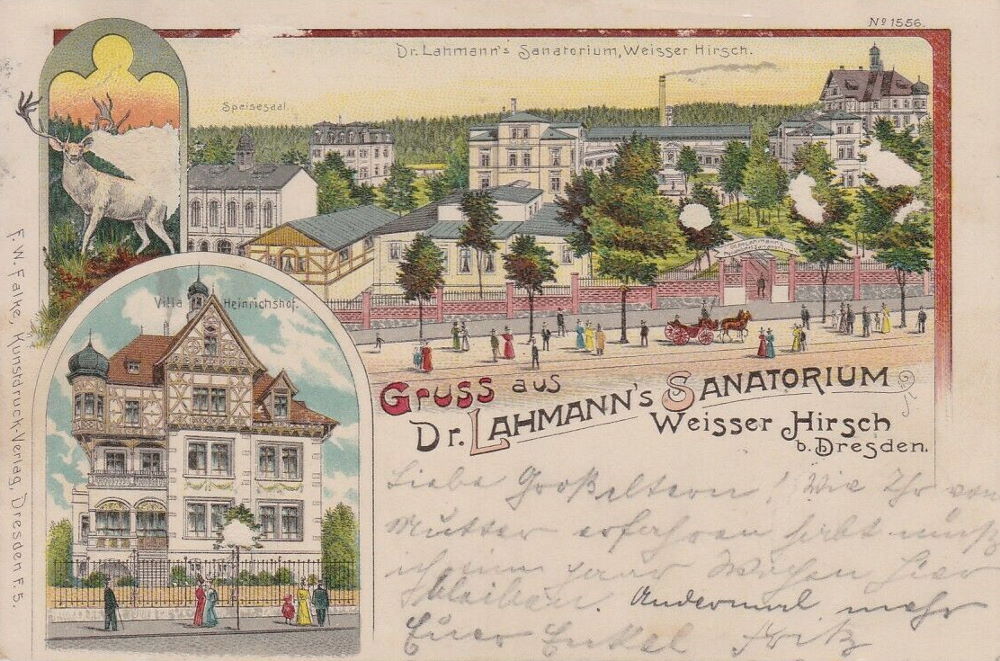 No 1556.
Dr. Lahmann's Sanatorium, Weisser Hirsch.
Speisesaal.
Villa Heinrichshof.
F. W. Falke, Kunstdruck-Verlag, Dresden F. 5.
Gruss aus
Dr. Lahmann's Sanatorium
Weisser Hirsch
b. Dresden.
Liebe Großeltern! Wie Ihr von
Mutter erfahren habt muß
ich ein paar Wochen hier
bleiben. Andermal mehr
Euer Enkel Fritz